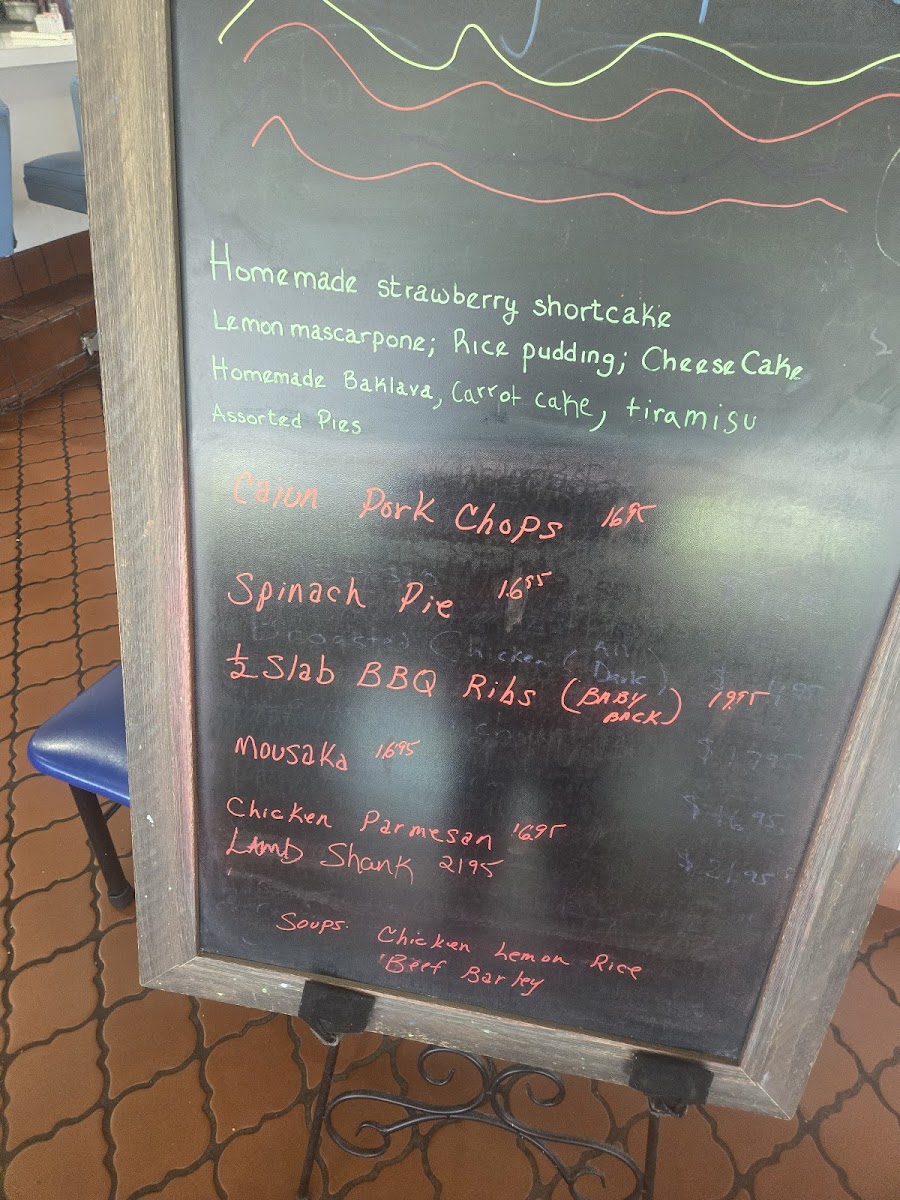 Homemade strawberry shortcake
Lemon mascarpone; Rice pudding; Cheese Cake
Homemade Baklava, Carrot cake, tiramisu
Assorted Pies
Cajun Pork Chops 16.95
Spinach Pie 16.95
½ Slab BBQ Ribs (BABY BACK) 19.95
Mousaka 16.95
Chicken Parmesan 16.95
Lamb Shank 21.95
Soups: Chicken Lemon Rice
Beef Barley